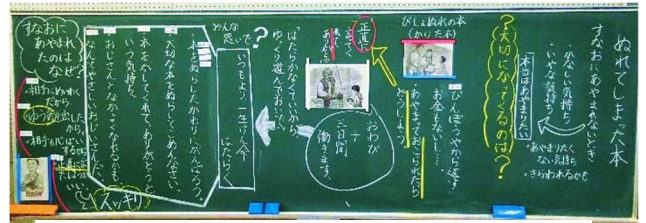 ぬれてしまった本
すなおにあやまれないとき、
・かなしい気持ち
・いやな気持ち
本当はあやまりたい
・あやまりたくない気持ち
・きらわれるかも
?大切になってくるのは?
びしょぬれの本
(かりた本)
びんぼうだから返す
お金もないし…
あやまっておこられたら
どうしよう
正直に
おわび
+
三日間
働きます。
はたらかなくていいから
ゆっくり遊んでおいで
みんな
思いで
いつもより一生けん命
はたらく
本をぬらしたかわりにがんばろう。
大切な本をぬらしてごめんなさい。
本をかしてくれてありがとうと
いう気持ち。
おじさんと、なかよくなれるかも
なんてやさしいおじさんだ。
すなおに
あやまれ
たのは
なぜ?
・相手にめいわく
だから
ゆう気を出した
から、
スッキリ